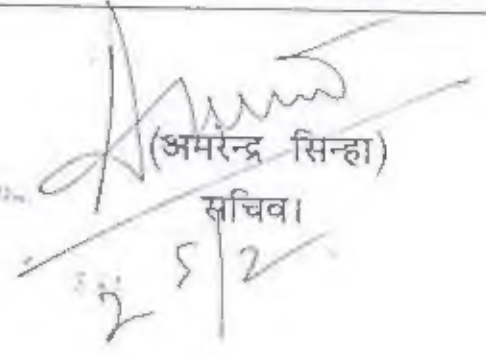 (अमरेन्द्र सिन्हा)
सचिव।
25/2